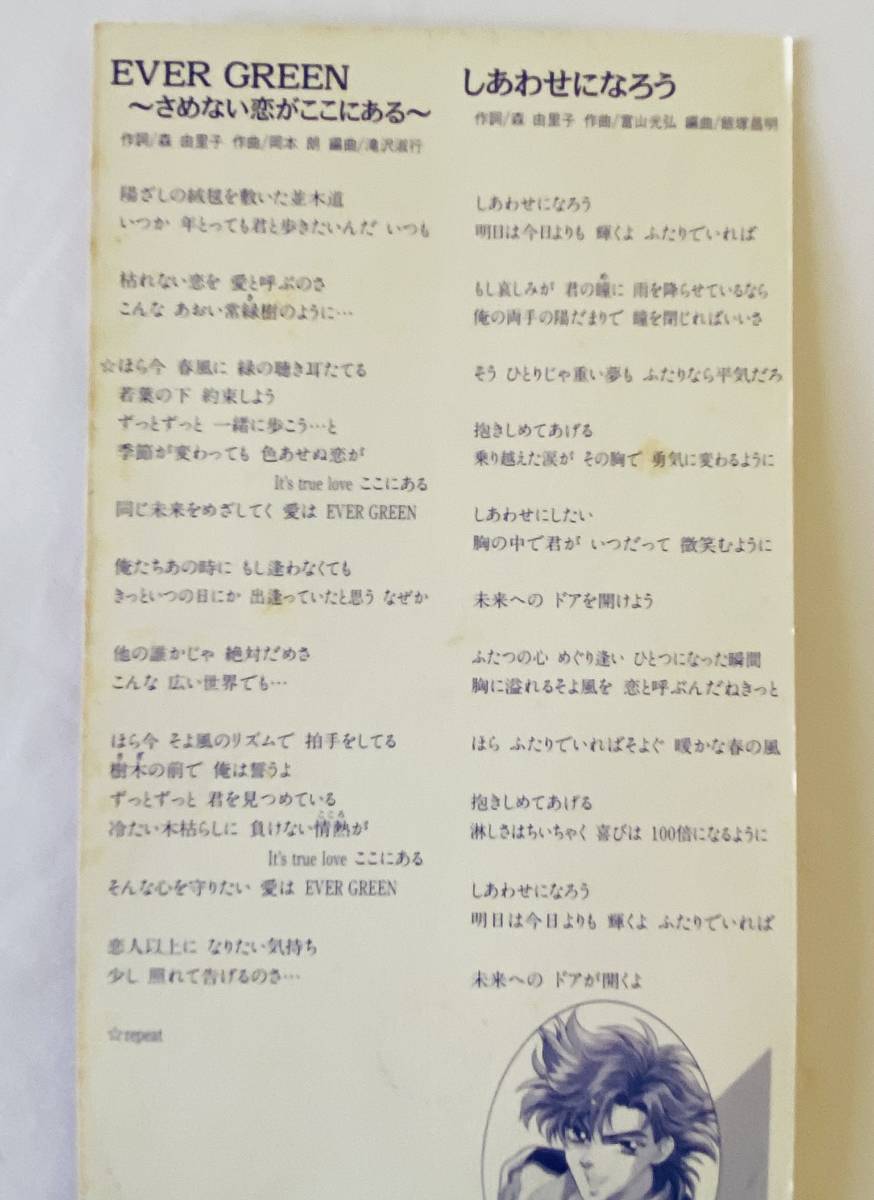 EVER GREEN
～さめない恋がここにある～
作詞/森 由里子 作曲/岡本 朗 編曲/滝沢淑行
陽ざしの絨毯を敷いた並木道
いつか 年とっても君と歩きたいんだ いつも
枯れない恋を 愛と呼ぶのさ
こんな あおい常緑樹のように…
☆ほら今 春風に 緑の聴き耳たてる
若葉の下 約束しよう
ずっとずっと 一緒に歩こう…と
季節が変わっても 色あせぬ恋が
It's true love ここにある
同じ未来をめざしてく 愛は EVER GREEN
俺たちあの時に もし逢わなくても
きっといつの日にか 出逢っていたと思う なぜか
他の誰かじゃ 絶対だめさ
こんな 広い世界でも…
ほら今 そよ風のリズムで 拍手をしてる
樹木の前で 俺は誓うよ
ずっとずっと 君を見つめている
冷たい木枯らしに 負けない情熱が
It's true love ここにある
そんな心を守りたい 愛は EVER GREEN
恋人以上に なりたい気持ち
少し 照れて告げるのさ…
☆repeat
しあわせになろう
作詞/森 由里子 作曲/富山光弘 編曲/飯塚昌明
しあわせになろう
明日は今日よりも 輝くよ ふたりでいれば
もし哀しみが 君の瞳に 雨を降らせているなら
俺の両手の陽だまりで 瞳を閉じればいいさ
そう ひとりじゃ重い夢も ふたりなら平気だろ
抱きしめてあげる
乗り越えた涙が その胸で 勇気に変わるように
しあわせにしたい
胸の中で君が いつだって 微笑むように
未来への ドアを開けよう
ふたつの心 めぐり逢い ひとつになった瞬間
胸に溢れるそよ風を 恋と呼ぶんだねきっと
ほら ふたりでいればそよぐ 暖かな春の風
抱きしめてあげる
淋しさはちいちゃく 喜びは 100倍になるように
しあわせになろう
明日は今日よりも 輝くよ ふたりでいれば
未来への ドアが開くよ